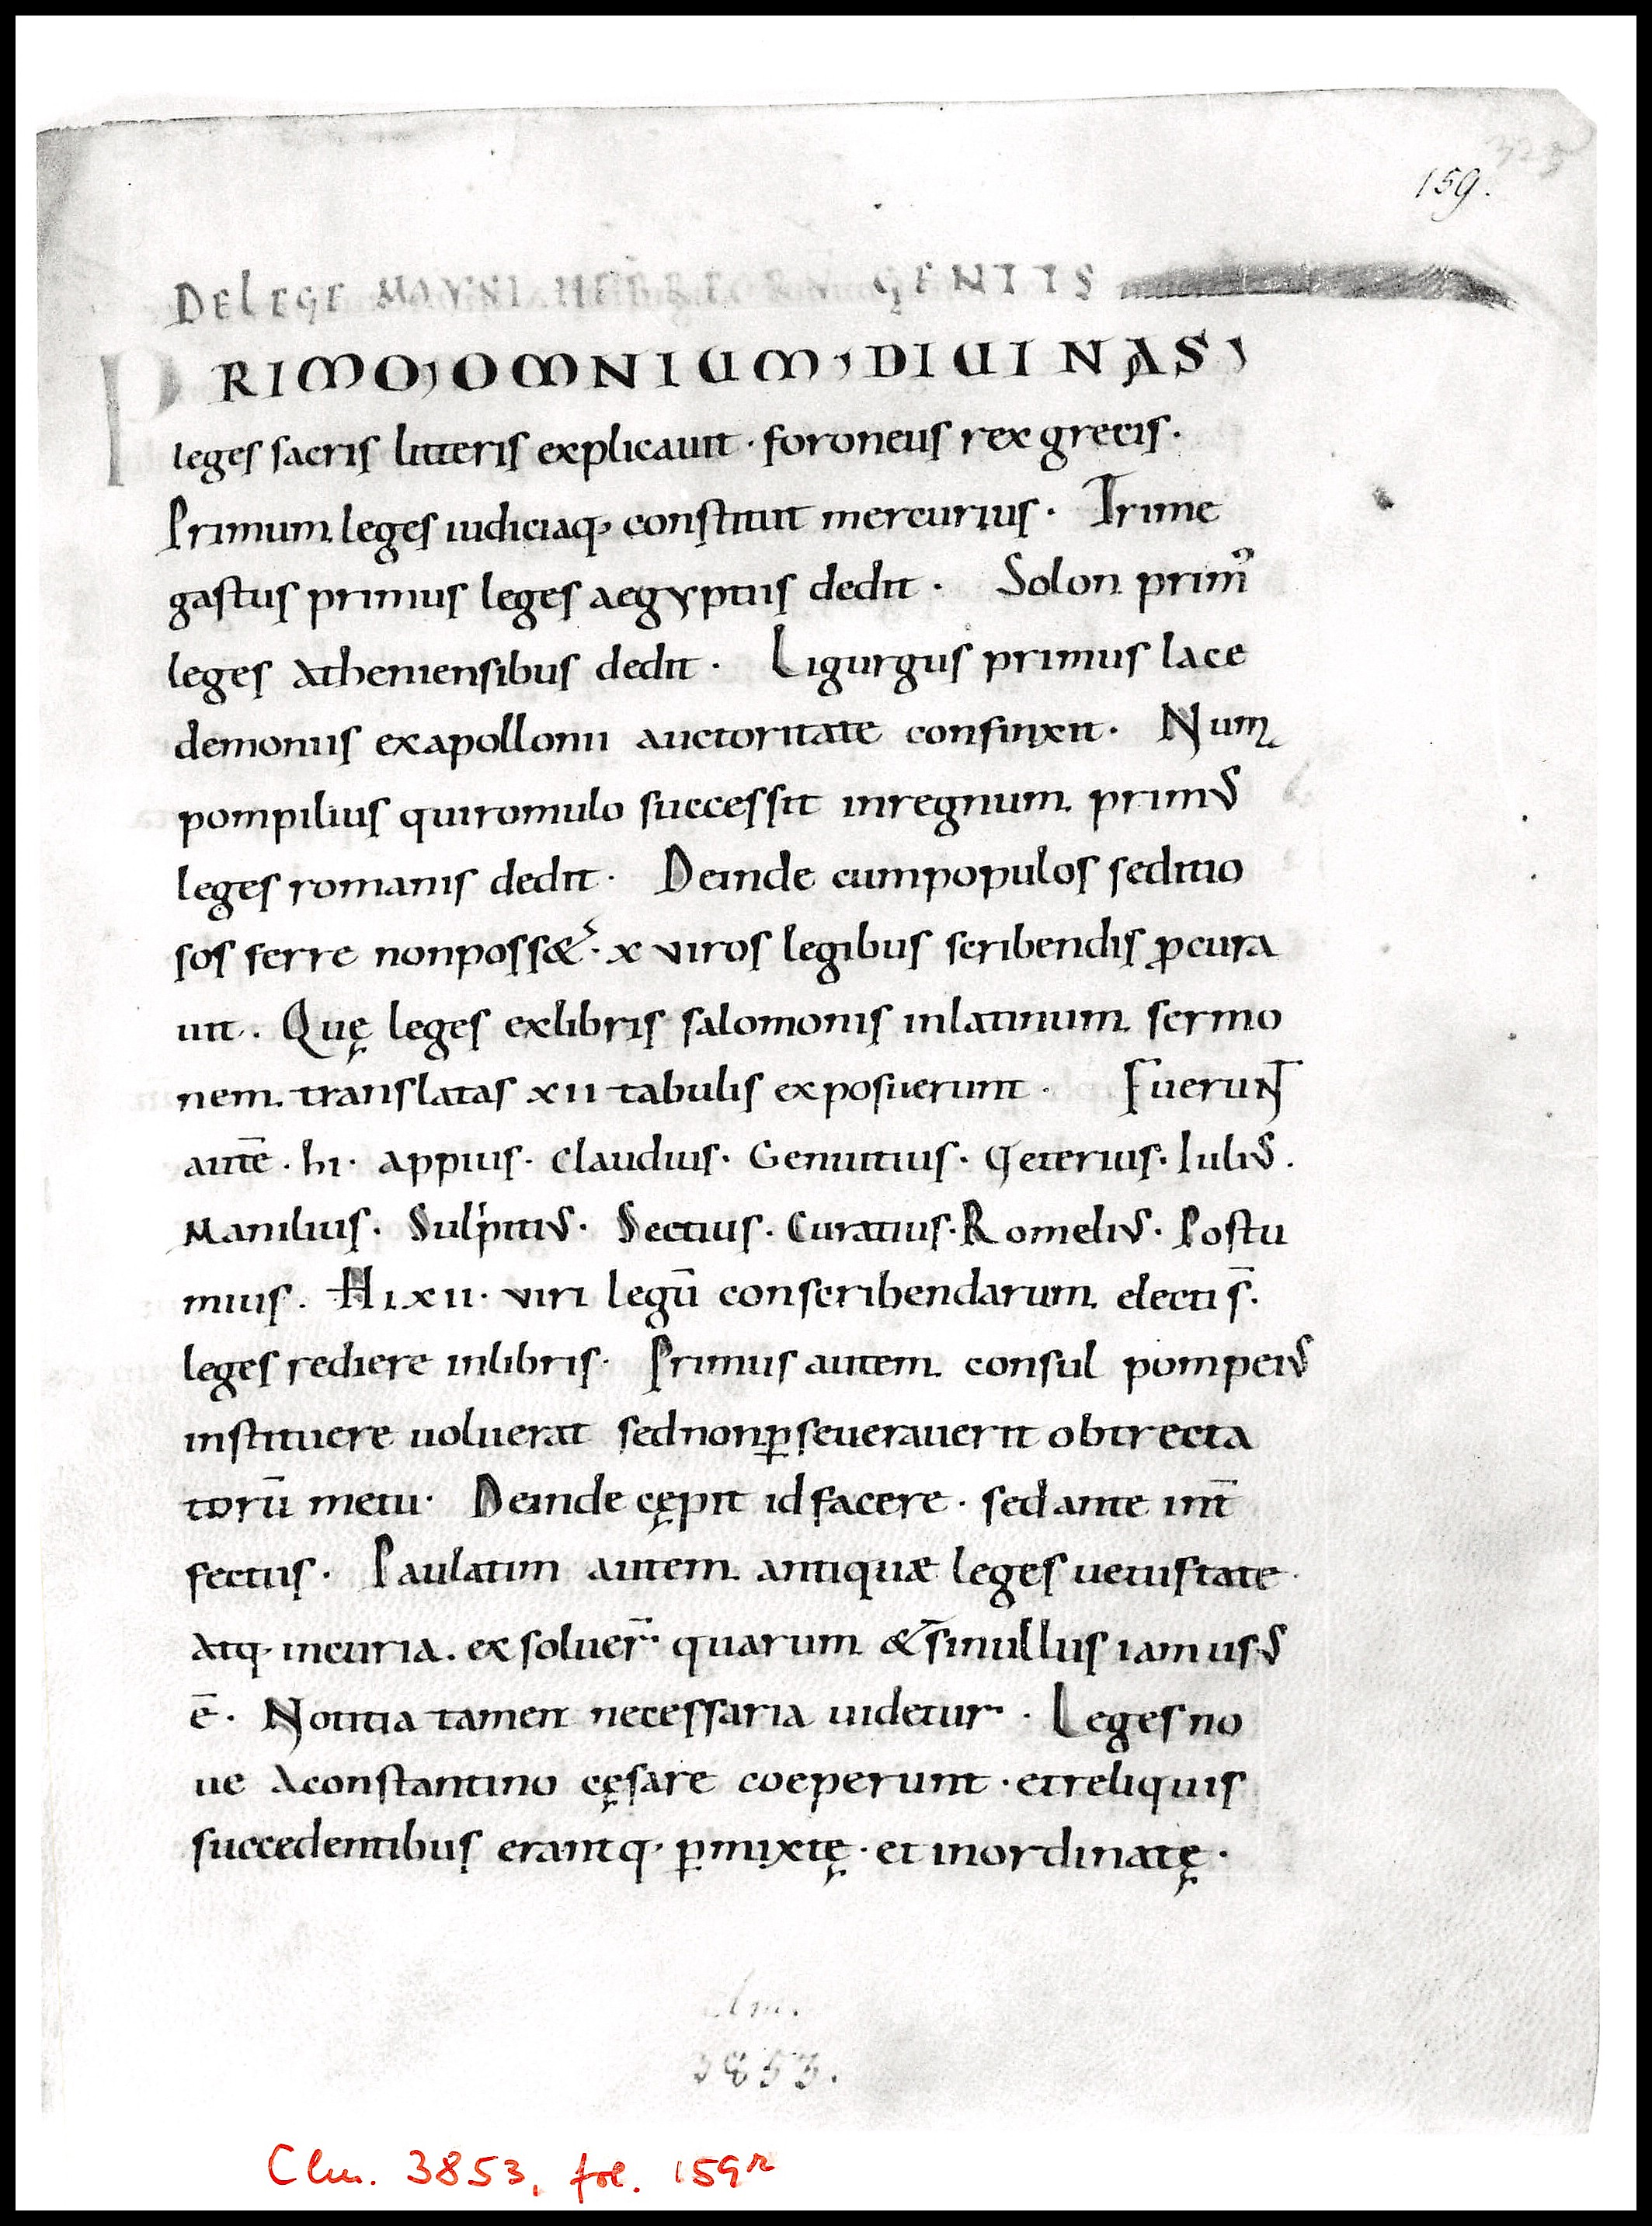 159.
DE LEGE MOYSI HEBREORŪ GENTIS
PRIMO, OMNIUM, DIUINAS,
leges sacris litteris explicauit · foroneus rex grecis ·
Primum leges iudiciaq· constituit mercurius · Trime
gastus primus leges aegyptiis dedit · Solon primꝰ
leges Atheniensibus dedit · Ligurgus primus lace
demoniis ex apollonii auctoritate confinxit · Num
pompilius qui romulo successit in regnum primus
leges romanis dedit · Deinde cum populos seditio
sos ferre non poss& · x viros legibus scribendis ꝓcura
uit · Quę leges ex libris salomonis in latinum sermo
nem translatas xii tabulis exposuerunt · Fuerunt
autē · hi · appius · Claudius · Genuitius · Qeterius · Iulius ·
Manilius · Sulpitius · Sectius · Curatius · Romelius · Postu
mius · Hi xii · viri legū conscribendarum electi s̄ ·
leges rediere in libris · Primus autem consul pompeius
instituere uoluerat sed non ꝑseuerauerit obtrecta
torū metu · Deinde cępit id facere · sed ante int̄
fectus · Paulatim autem antiquae leges uetustate ·
Atq· incuria · exsoluer̄ · quarum &s̄i nullus iam usus
ē · Notitia tamen necessaria uidetur · Leges no
ue A constantino cęsare coeperunt · et reliquis
succedentibus erantq· ꝑmixtę · et inordinatę ·
clm.
3853.
Clm. 3853, fol. 159r